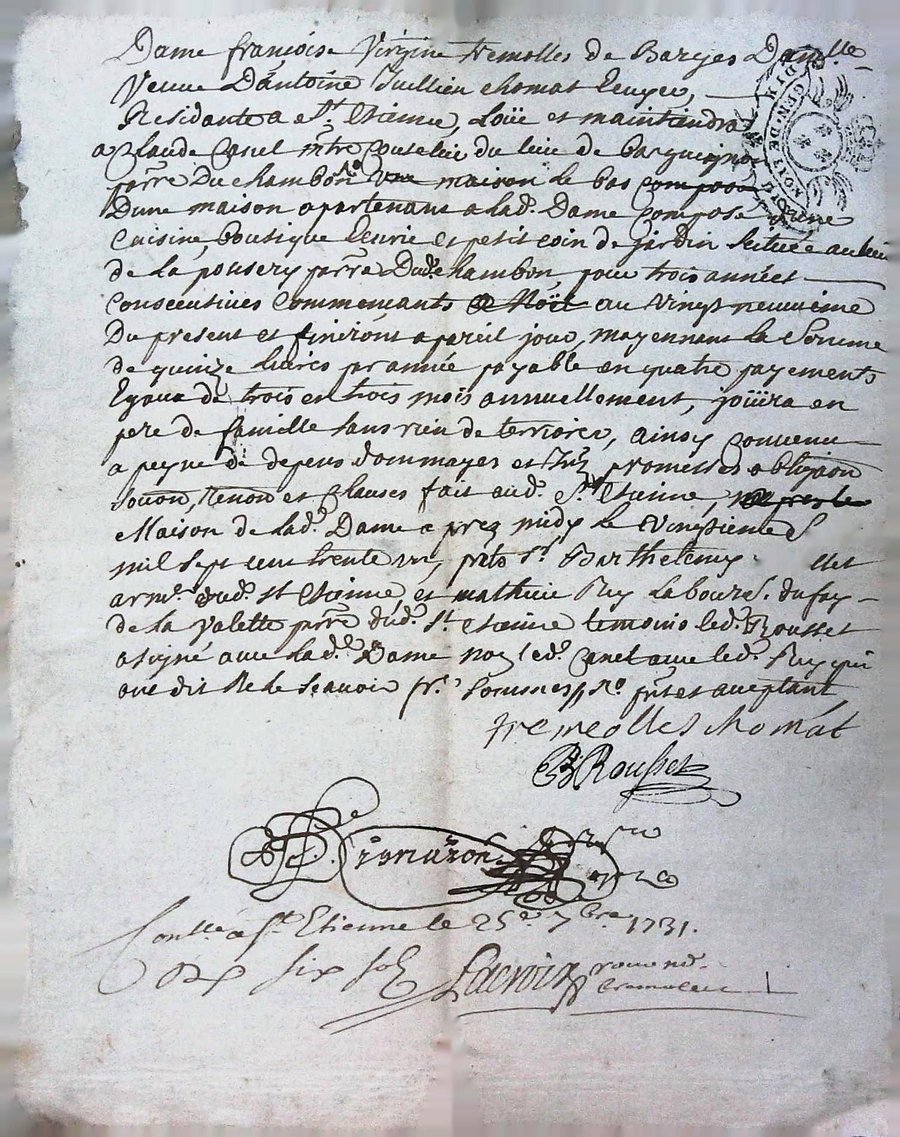 Dame françoise Virgine tremolles de Barges
Veuve D'antoine Jullien Chomat Ecuyer,
Residante a St. Etienne, Loüe et maintiendra
a Claude Canel mtre Coutelier du lieu de
parre Du Chambon maison le bas
Dune maison apartenant a lad. Dame Composé Dune
Cuisine, boutique Ecurie et petit coin de jardin scituée au lieu
de la parre Dud. Chambon, pour trois années
Consecutives Commencants a Noël au Vingt neuvieme
Du present et finiront a pareil jour, moyennant la Somme
de quinze Livres par année payable en quatre payements
Egaux de trois en trois mois annuellement, joüira en
pere de famille sans rien deterriorer, ainsy Convenu
a peyne de depens dommages et promesses obligaon
soumon, renon et Clauses fait aud. St Etienne,
Maison de lad. Dame aprez midy le
mil sept cent trente un, pnts Sr. Barthelemy
arme. dud. St Etienne et mathieu Rey Laboure. du fay
de la Valette parre dud. St. Etienne temoins led. Rousset
a signé avec lad. Dame non led. Canel avec led. Rey qui
ont dit ne le scavoir
tremeolles Chomat
B Rousset
Contlé a St Etienne le 25e 7bre 1731.
six sols Lacroix
GEN. DE LYON